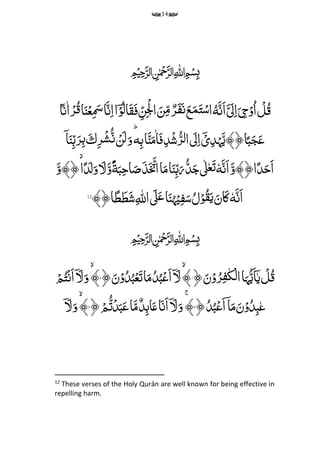 14
بِسْمِ اللّٰهِ الرَّحْمٰنِ الرَّحِيْمِ
قُلْ اُوْحِيَ اِلَيَّ اَنَّهُ اسْتَمَعَ نَفَرٌ مِّنَ الْجِنِّ فَقَالُوْٓا اِنَّا سَمِعْنَا قُرْاٰنًا
عَجَبًا ﴿﴾ يَّهْدِيْٓ اِلَى الرُّشْدِ فَاٰمَنَّا بِهٖ ؕ وَلَنْ نُّشْرِكَ بِرَبِّنَآ
اَحَدًا ۙ﴿﴾ وَّاَنَّهٗ تَعٰلٰى جَدُّ رَبِّنَا مَا اتَّخَذَ صَاحِبَةً وَّلَا وَلَدًا ۙ﴿﴾ وَّ
اَنَّهٗ كَانَ يَقُوْلُ سَفِيْهُنَا عَلَى اللّٰهِ شَطَطًا ﴿﴾ 12
بِسْمِ اللّٰهِ الرَّحْمٰنِ الرَّحِيْمِ
قُلْ يٰٓاَيُّهَا الْكٰفِرُوْنَ ۙ﴿﴾ لَآ اَعْبُدُ مَا تَعْبُدُوْنَ ۙ﴿﴾ وَلَآ اَنْتُمْ
عٰبِدُوْنَ مَآ اَعْبُدُ ۚ﴿﴾ وَلَآ اَنَا عَابِدٌ مَّا عَبَدْتُّمْ ۙ﴿﴾ وَلَآ
12 These verses of the Holy Qurān are well known for being effective in
repelling harm.